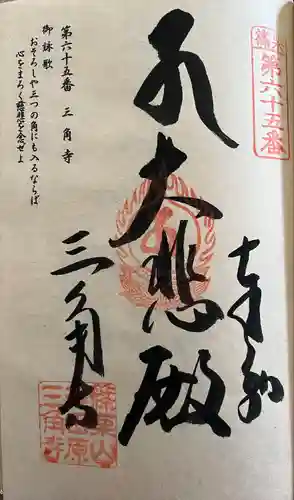 奉納
大悲殿
三角寺
第六十五番
第六十五番　三角寺
御詠歌
おそろしや三つの角にも入るならば
心をまろく慈悲を念ぜよ
三角寺